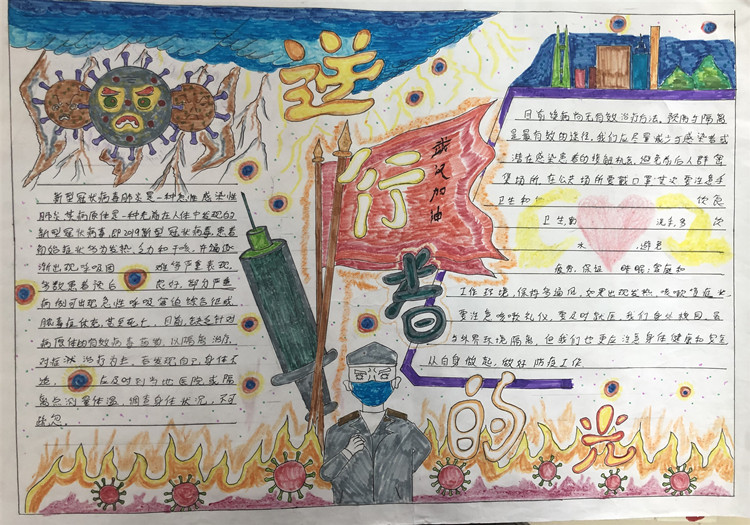 逆
行
者
的
光
武汉加油
新型冠状病毒肺炎是一种急性感染性
肺炎,其病原体是一种先前在人体中发现的
新型冠状病毒,即2019新型冠状病毒,患者
初始症状多为发热、乏力和干咳,并逐渐
渐出现呼吸困难等严重表现,
多数患者预后良好,部分严重
病例可出现急性呼吸窘迫综合征或
脓毒症休克,甚至死亡。目前,缺乏针对
病原体的有效抗病毒药物,以隔离治疗,
对症 治疗为主。若发现自己身体不
适, 应及时到当地医院或隔
离点测量体温,调查身体状况,不可
疏忽。
目前该病尚无有效治疗方法,预防与隔离
是最有效的途径,我们应尽量减少与感染者或
潜在感染患者的接触机会,避免前后人群密
集场所,在公共场所要戴口罩其次要注意手
卫生和 饮食
卫生,勤 洗手,多 饮
水 ,避免
疲劳,保证 睡眠;家庭和
工作环境,保持多通风,如果出现发热,咳嗽等症状
要注意咳嗽礼仪,要及时就医,我们身处校园,虽
与外界环境隔离,但我们也更应注意身体健康和安全
从自身做起,做好防疫工作